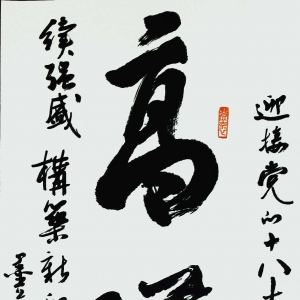 迎接党的十八大
高
续强盛 構築新
墨